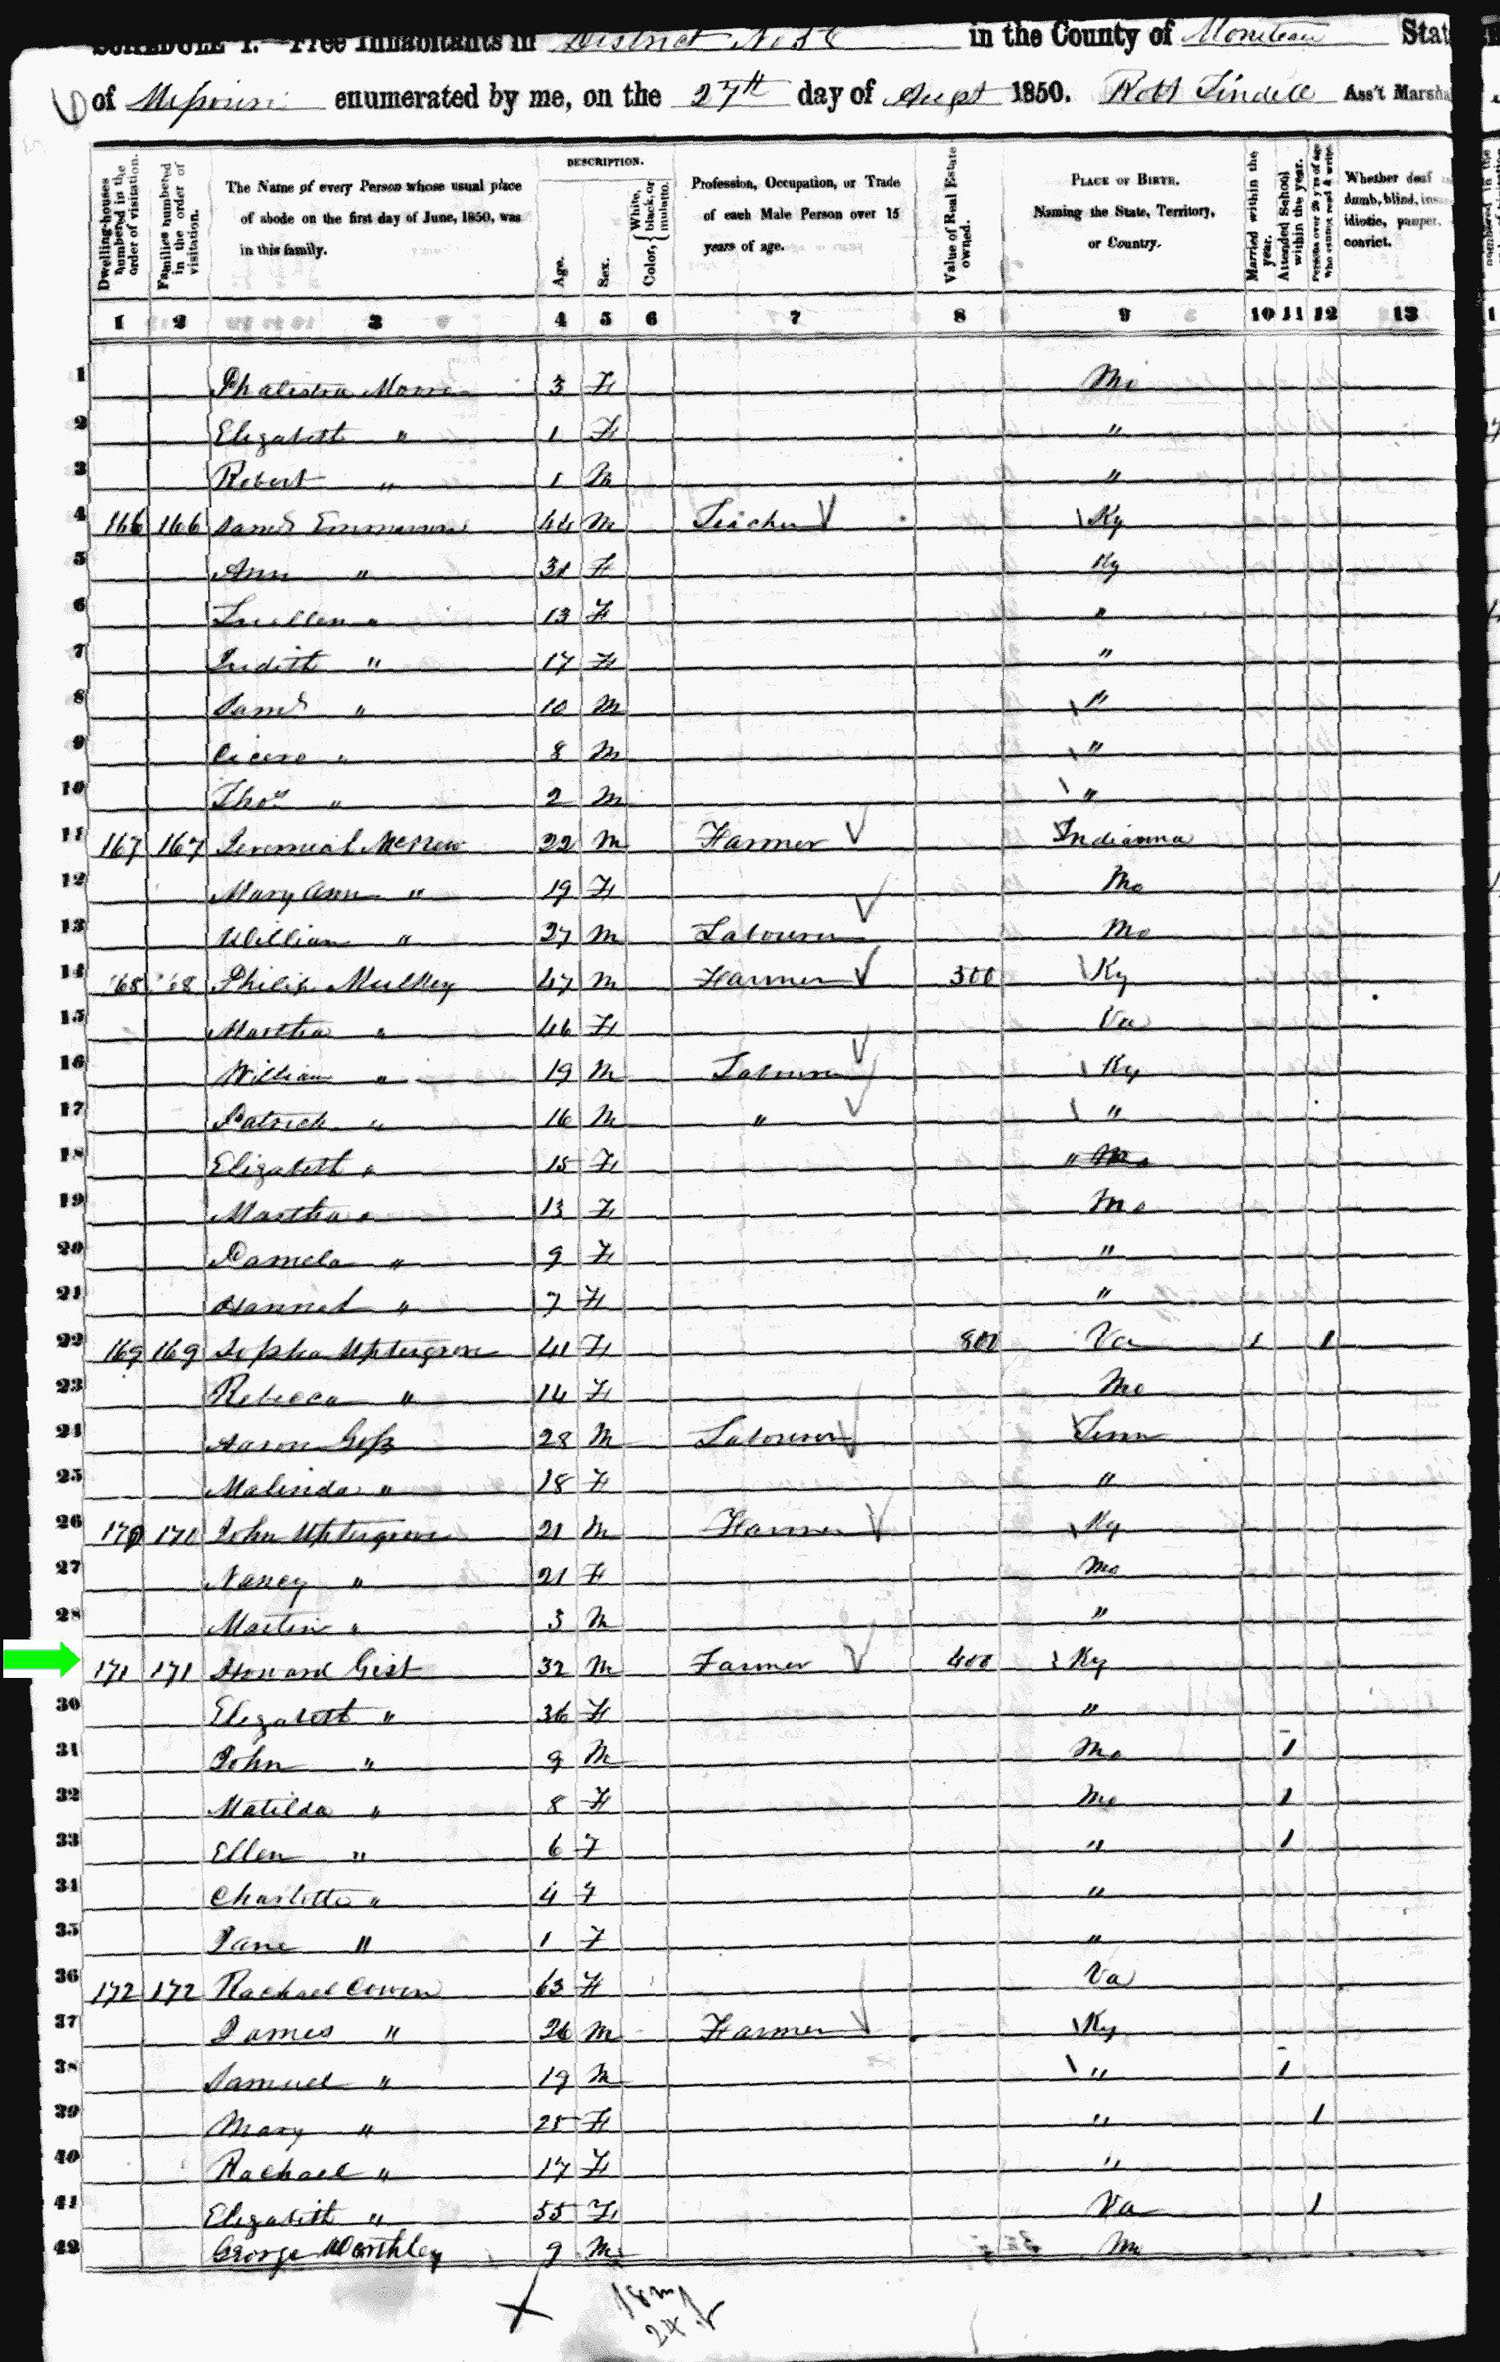 SCHEDULE I.—Free Inhabitants in District No 56 in the County of Moniteau State
of Missouri enumerated by me, on the 27th day of Augst 1850. Robt Tindell Ass't Marsha
Dwelling-houses numbered in the order of visitation.
Families numbered in the order of visitation.
The Name of every Person whose usual place of abode on the first day of June, 1850, was in this family.
DESCRIPTION.
Age.
Sex.
Color, White, black, or mulatto.
Profession, Occupation, or Trade of each Male Person over 15 years of age.
Value of Real Estate owned.
PLACE OF BIRTH. Naming the State, Territory, or Country.
Married within the year.
Attended School within the year.
Persons over 20 y'rs of age who cannot read & write.
Whether deaf dumb, blind, insa idiotic, pauper, convict.
1 2 3 4 5 6 7 8 9 10 11 12 13
1 Moore 3 F Mo
2 Elizabeth " 1 F "
3 Robert " 1 M "
4 166 166 Saml Emmerson 44 M Teacher Ky
5 Ann " 31 F Ky
6 Luellen " 13 F "
7 Judith " 17 F "
8 Saml " 10 M "
9 Cicero " 8 M "
10 Thos " 2 M "
11 167 167 Jeremiah McNew 22 M Farmer Indianna
12 Mary Ann " 19 F Mo
13 William " 27 M Labourer Mo
14 168 168 Philip Mulkey 47 M Farmer 300 Ky
15 Martha " 46 F Va
16 William " 19 M Labourer Ky
17 Patrick " 16 M " "
18 Elizabeth " 15 F " Mo
19 Martha " 13 F Mo
20 Pamela " 9 F "
21 Hannah " 7 F "
22 169 169 Uptegrove 41 F 800 Va 1 1
23 Rebecca " 14 F Mo
24 Aaron Goss 28 M Labourer Tenn
25 Malinda " 18 F "
26 170 170 John Uptegrove 21 M Farmer Ky
27 Nancy " 21 F Mo
28 Martin " 3 M "
171 171 Howard Gist 32 M Farmer 400 Ky
30 Elizabeth " 36 F "
31 John " 9 M Mo 1
32 Matilda " 8 F Mo 1
33 Ellen " 6 F " 1
34 Charlotte " 4 F "
35 Jane " 1 F "
36 172 172 Rachael Cowen 63 F Va
37 James " 26 M Farmer Ky
38 Samuel " 19 M " 1
39 Mary " 25 F " 1
40 Rachael " 17 F "
41 Elizabeth " 55 F Va 1
42 George Worthley 9 M Mo